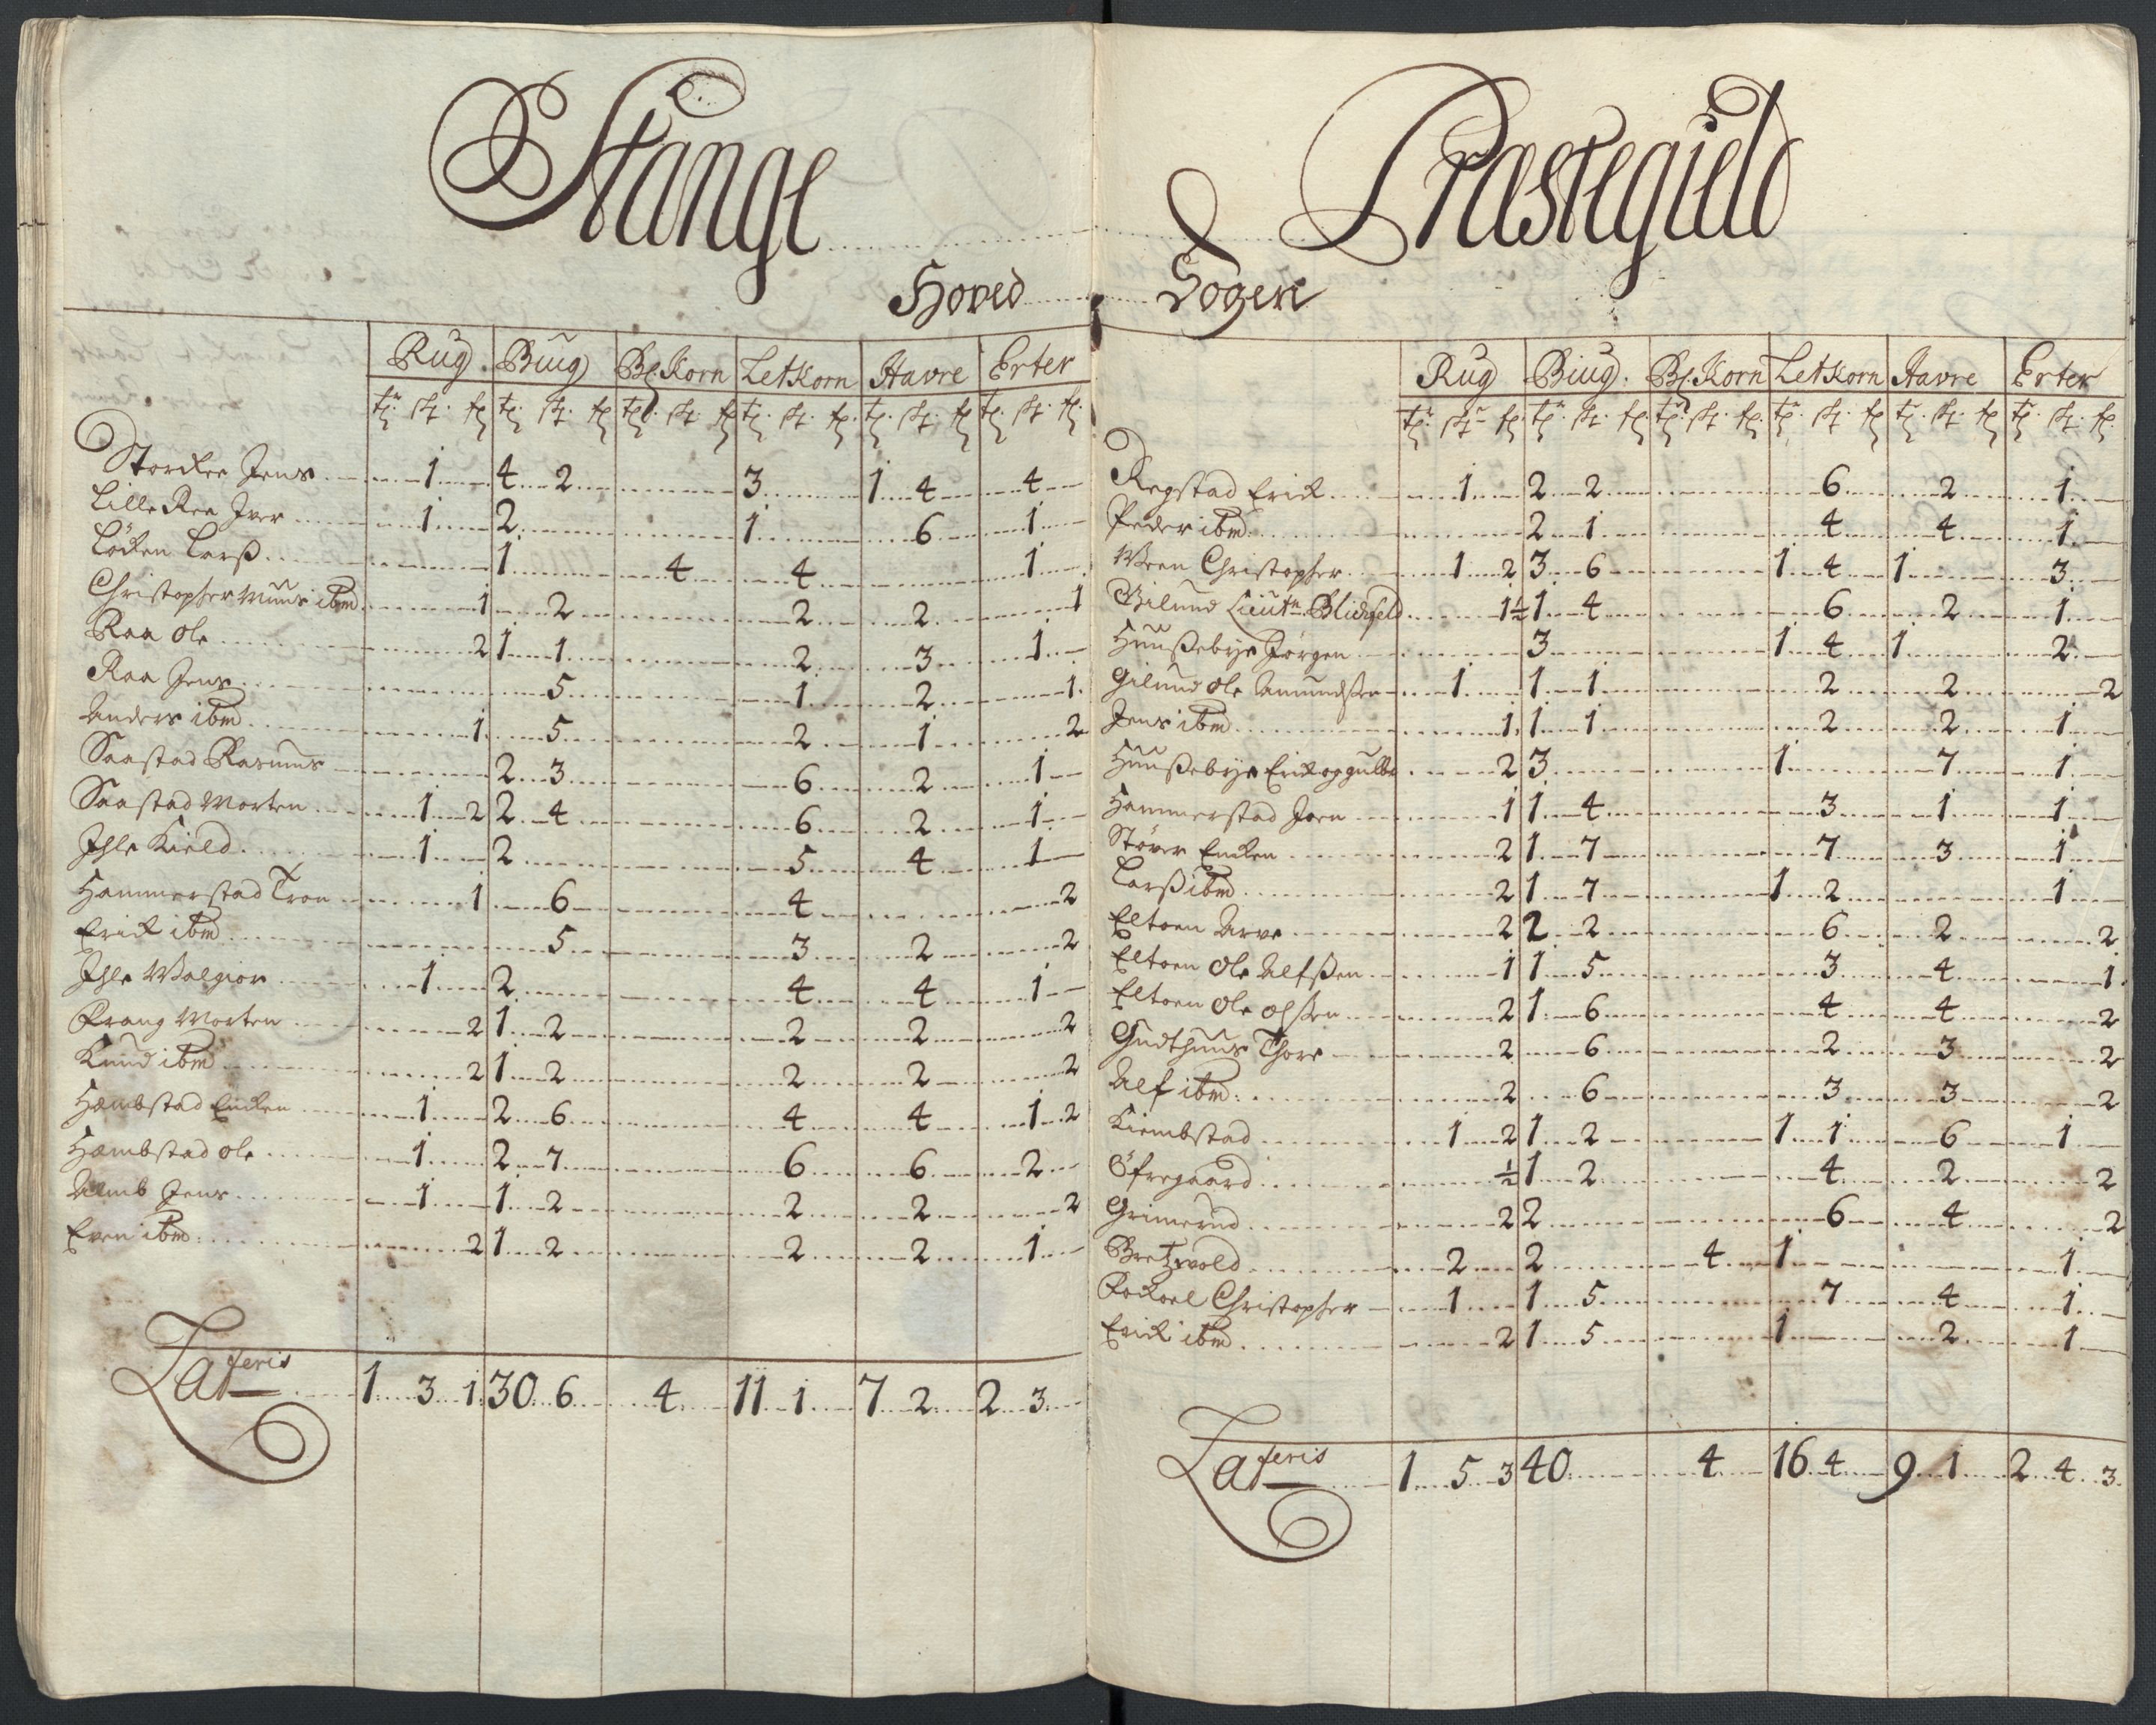 Stange Præstegield
Hoved Sogen
Rug Biug Bl: Korn Let Korn Havre Erter
Jens 1 4 2 3 1 4 4
Lille Ree Iver 1 2 1 6 1
Löcken Larß 1 4 4 1
Christopher Muus ibm 1 2 2 2 1
Raa Ole 2 1 1 2 3 1
Raa Jens 5 1 2 1
Anders ibm 1 5 2 1 2
Saastad Rasmus 2 3 6 2 1
Saastad Morten 1 2 2 4 6 2 1
Ihle Kield 1 2 5 4 1
Hammerstad Tron 1 6 4 2
Erick ibm 5 3 2 2
Ihle 1 2 4 4 1
Prang Morten 2 1 2 2 2 2
Knud ibm 2 1 2 2 2 2
Hæmbstad Encken 1 2 6 4 4 1 2
Hæmbstad Ole 1 2 7 6 6 2
Almb Jens 1 1 2 2 2 2
Even ibm 2 1 2 2 2 1
Lateris 1 3 1 30 6 4 11 1 7 2 2 3
Rug Biug: Bl: Korn Let Korn Havre Erter
Regstad Erick 1 2 2 6 2 1
Peder ibm 2 1 4 4 1
Christopher 1 2 3 6 1 4 1 3
Gilund Lieutn Blichfeld 1½ 1 4 6 2 1
Huußebye Jörgen 3 1 4 1 2
Gilund Ole Amundsen 1 1 1 2 2 2
Jens ibm 1 1 1 2 2 1
Huußebye Erick og Gulbr 2 3 1 7 1
Hammerstad Joen 1 1 4 3 1 1
Stöver Encken 2 1 7 7 3 1
Larß ibm 2 1 7 1 2 1
Eltoen Arve 2 2 2 6 2 2
Eltoen Ole Alfßen 1 1 5 3 4 1
Eltoen Ole Olßen 2 1 6 4 4 2
Gudthuus Thore 2 6 2 3 2
Alf ibm: 2 6 3 3 2
Kiembstad 1 2 1 2 1 1 6 1
Öfregaard ½ 1 2 4 2 2
Grimerud 2 2 6 4 2
Bretzvold 2 2 4 1 1
Christopher 1 1 5 7 4 1
Erick ibm 2 1 5 1 2 1
Lateris 1 5 3 40 4 16 4 9 1 2 4 3